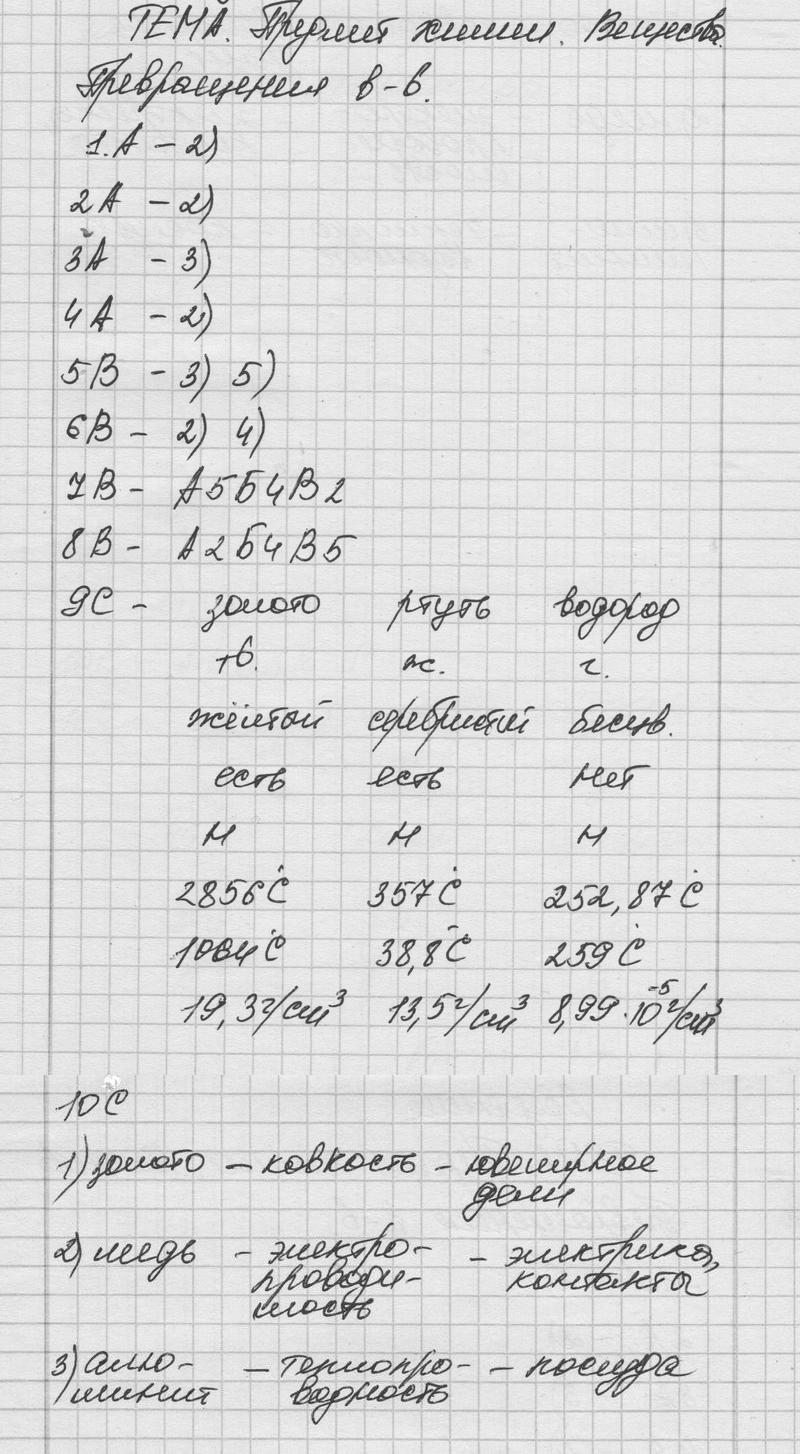 ТЕМА. Предмет химии. Вещества.
Превращения в-в.
1.А - 2)
2А - 2)
3А - 3)
4А - 2)
5В - 3) 5)
6В - 2) 4)
7В - А5Б4В2
8В - А2Б4В5
9С - золото ртуть водород
тв. ж. г.
жёлтый серебристый бесцв.
есть есть нет
Н Н Н
2856°С 357°С 252,87°С
1064°С 38,8°С 259°С
19,3г/см³ 13,5г/см³ 8,99·10⁻⁵г/см³
10С
1) золото - ковкость - ювелирное
дели
2) медь - электро- - электрика,
проводи- контакты
мость
3) алю- - теплопро- - посуда
минит водность